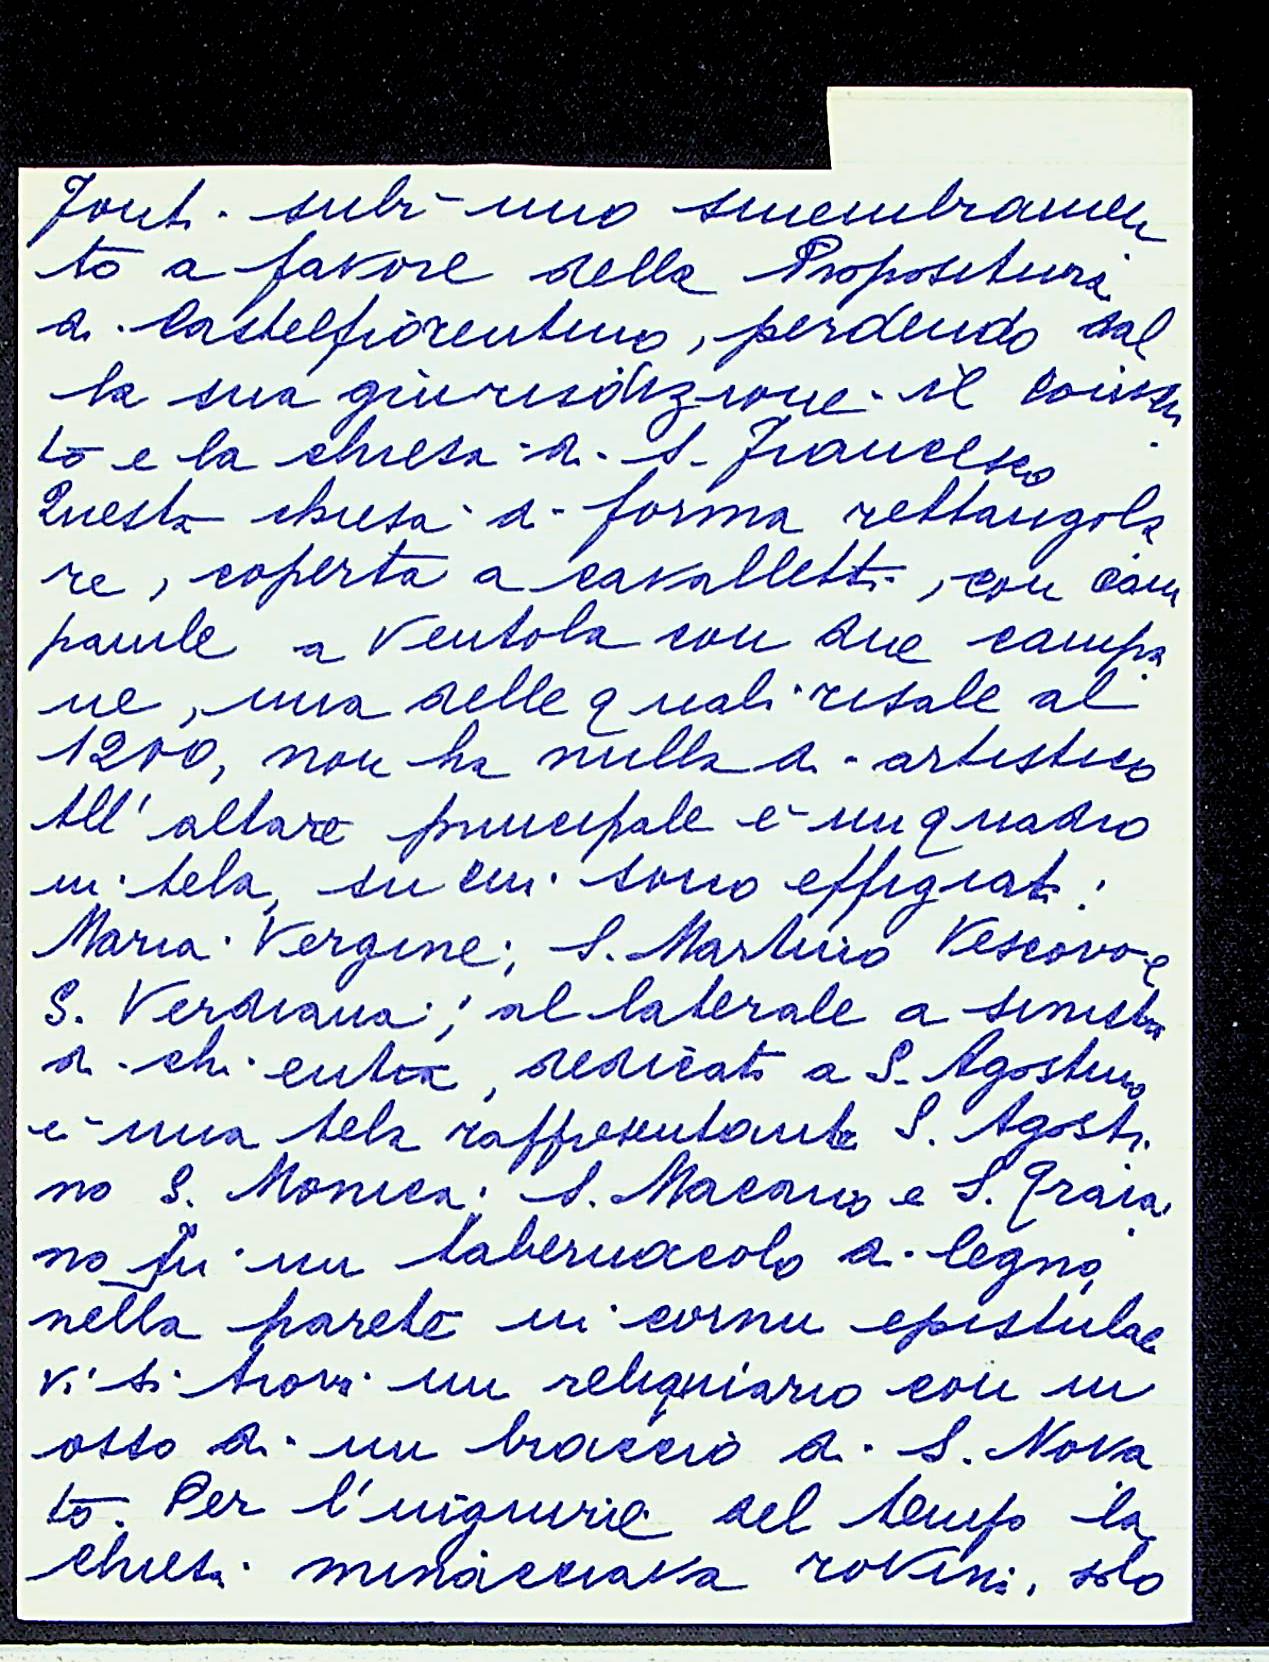 Font. subì uno smembramen
to a favore della Propositura
di Castelfiorentino, perdendo dal
la sua giurisdizione il conven
to e la chiesa di S. Francesco
Questa chiesa di forma rettangola
re, coperta a cavalletti, con cam
panile a ventola con due campa
ne, una delle quali risale al
1200, non ha nulla di artistico
All'altare principale è un quadro
in tela, su cui sono effigiati:
Maria Vergine; S. Martino Vescovo e
S. Verdiana; al laterale a sinistra
di chi entra, dedicato a S. Agostino
è una tela raffresentante S. Agosti
no S. Monica; S. Macario e S. Graia
no In un tabernacolo di legno,
nella parete in cornu epistulae
vi si trova un reliquiario con un
osso di un braccio di S. Nova
to. Per l'ingiurie del tempo la
chiesa minacciava rovina, solo